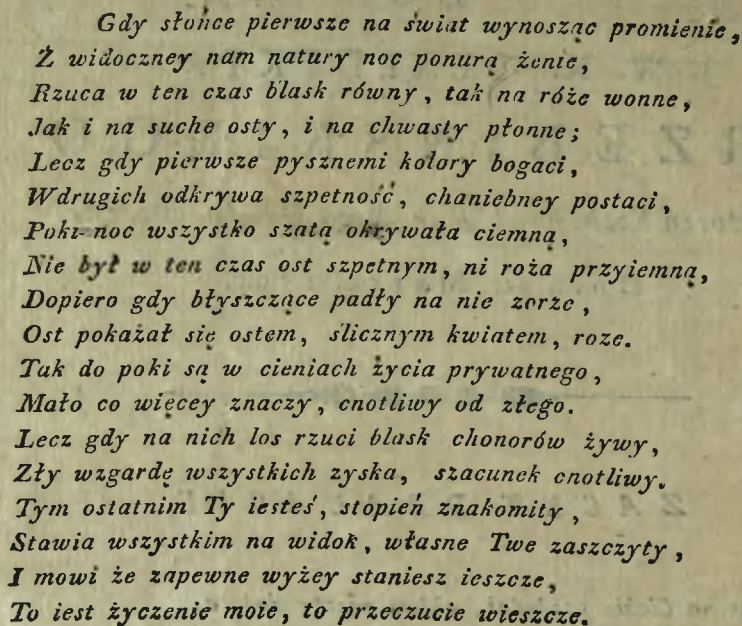 Gdy słońce pierwsze na świat wynosząc promienie,
Ż widoczney nam natury noc ponurą żenie,
Rzuca w ten czas blask równy, tak na róże wonne,
Jak i na suche osty, i na chwasty płonne;
Lecz gdy pierwsze pysznemi kolory bogaci,
Wdrugich odkrywa szpetność, chaniebney postaci,
Poki noc wszystko szatą okrywała ciemną,
Nie był w ten czas ost szpetnym, ni roża przyiemną,
Dopiero gdy błyszczące padły na nie zorze,
Ost pokażał się ostem, ślicznym kwiatem, roze.
Tak do poki są w cieniach życia prywatnego,
Mało co więcey znaczy, cnotliwy od złego.
Lecz gdy na nich los rzuci blask chonorów żywy,
Zły wzgardę wszystkich zyska, szacunek cnotliwy.
Tym ostatnim Ty iesteś, stopień znakomity,
Stawia wszystkim na widok, własne Twe zaszczyty,
I mowi że zapewne wyżey staniesz ieszcze,
To iest życzenie moie, to przeczucie wieszcze.